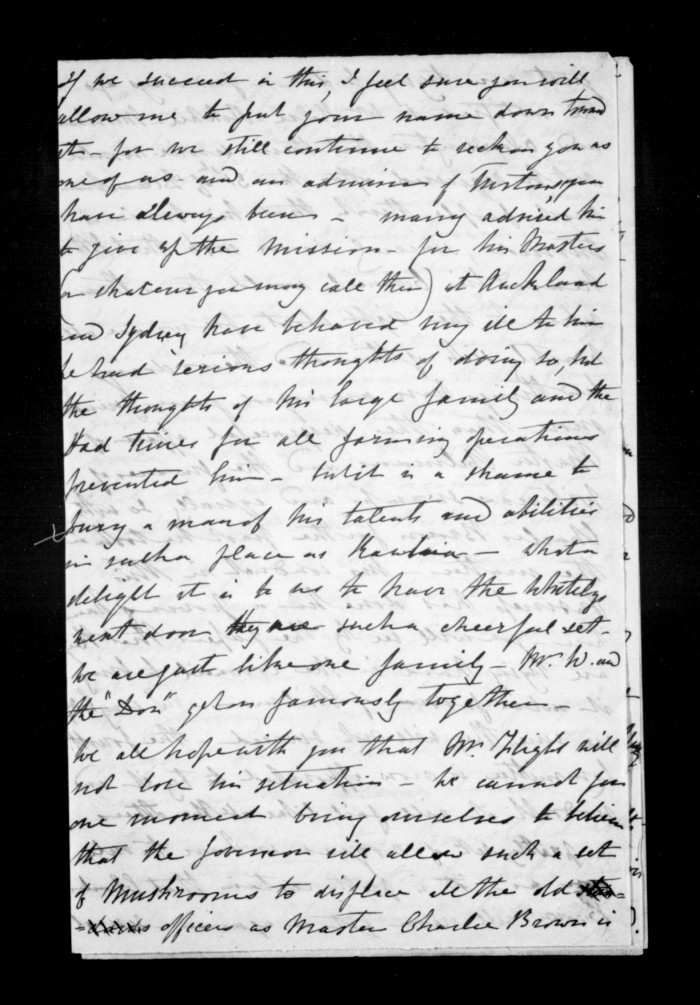 If we succeed in this, I feel sure you will
allow me to put your name down toward
it - for we still continue to reckon you as
one of us and an admirer of you
have always been - many advised him
to give up the Mission - for his Masters
(or whatever you may call them) at Auckland
and Sydney have behaved very ill to him
he had serious thoughts of doing so, but
the thoughts of his large family and the
bad times for all farming operations
prevented him - but it is a shame to
bury a man of his talents and abilities
in such a place as Kawhia - what a
delight it is to us to have the Whiteleys
next door they are such a cheerful set -
we are just like one family - Mr. W. and
the "Don" get on famously together -
We all hope with you that Mr. Flight will
not lose his situation - we cannot for
one moment bring ourselves to believe
that the Governor will allow such a set
of Mushrooms to displace all the old
officers as Master Charlie Brown is